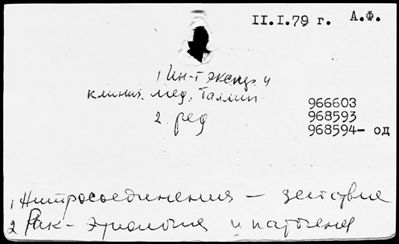 II.I.79 г. А.Ф.
1 Ин-т экспер. и
клинич. мед. Таллин
2. ред
966603
968593
968594- од
1 Нитросоединения — действие
2 Рак - этиология и патогенез